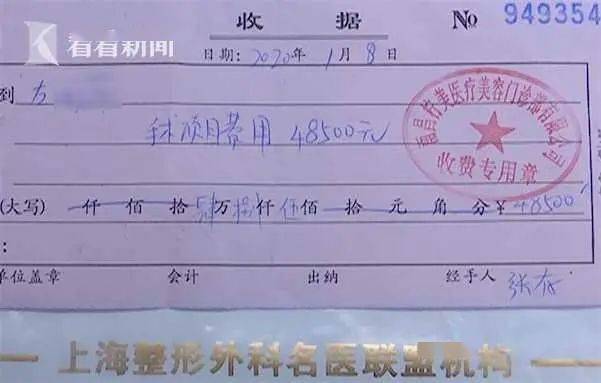 收 据 № 949354
看看新闻
日期: 2020 年 1 月 8 日
到 方
手术项目费用 48500元
美医疗美容门诊部有限公司
收费专用章
(大写) 仟 佰 拾 肆 万 捌 仟 伍 佰 拾 元 角 分 ¥ 48500
:
单位盖章 会计 出纳 经手人 张
上海整形外科名医联盟机构